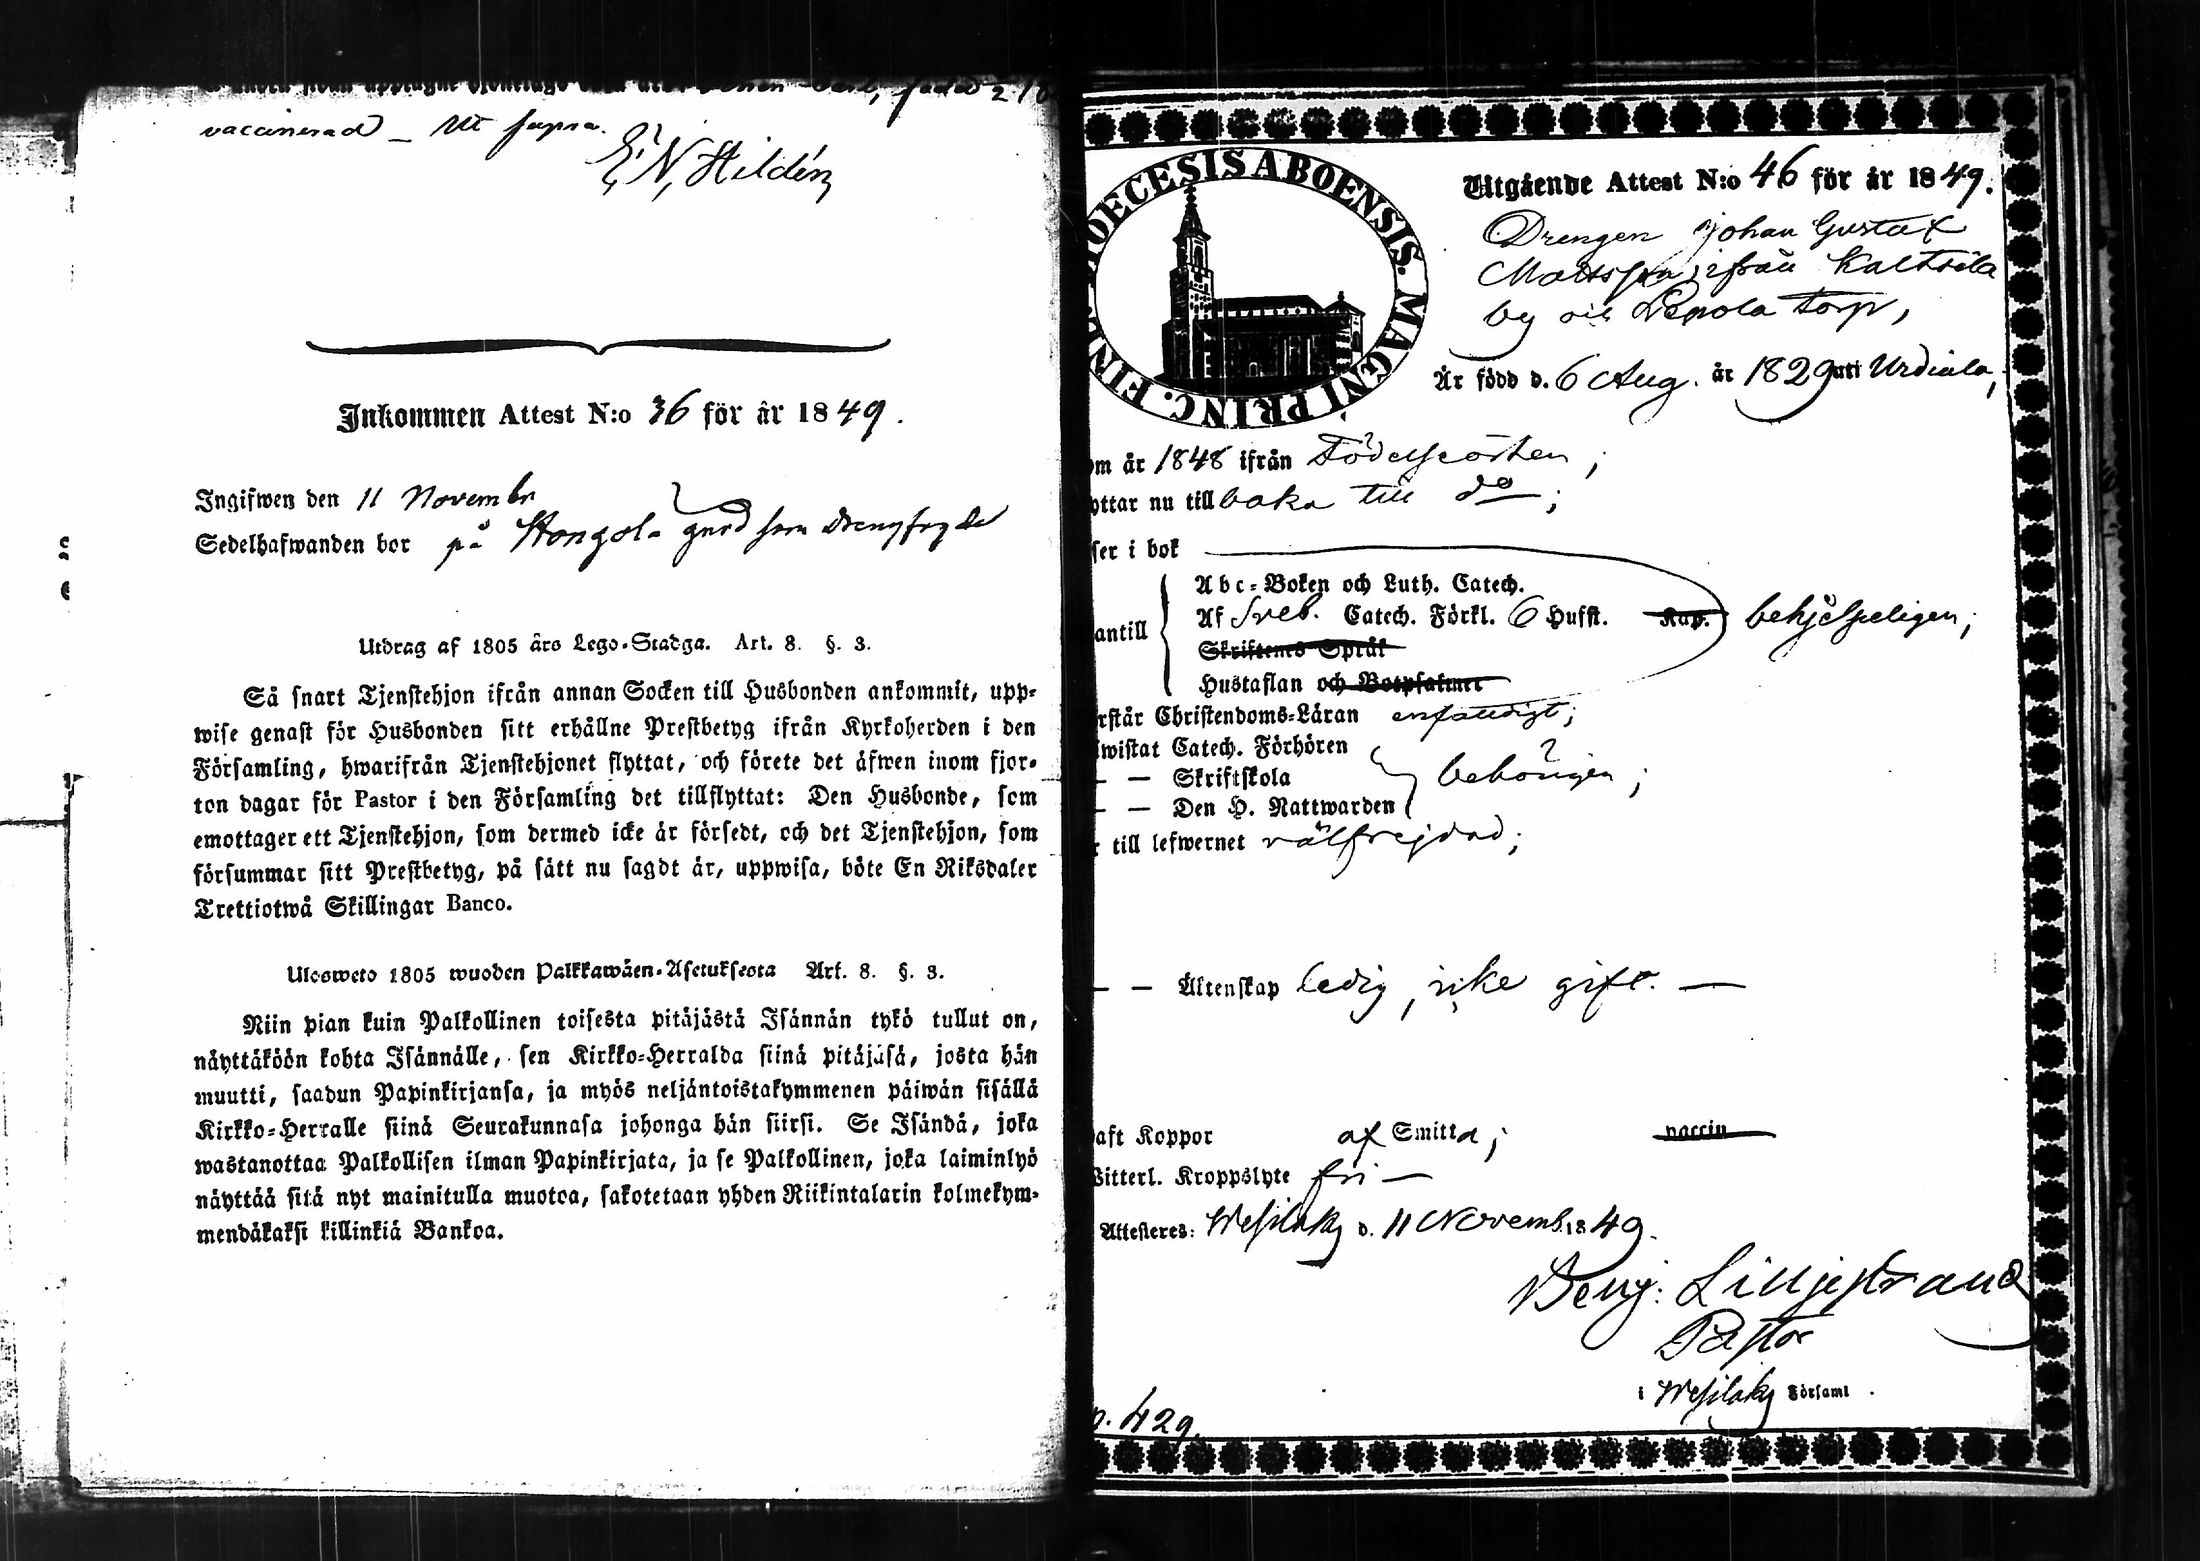 vaccinerad _ Ut supra.
E. N. Hildén
Inkommen Attest N:o 36 för år 1849.
Ingifwen den 11 Novembr
Sedelhafwanden bor på Hongola gård som drengfogde
Utdrag af 1805 års Lego-Stadga. Art. 8. §. 3.
Så snart Tjenstehjon ifrån annan Socken till Husbonden ankommit, upp-
wise genast för Husbonden sitt erhållne Prestbetyg ifrån Kyrkoherden i den
Församling, hwarifrån Tjenstehjonet flyttat, och förete det äfwen inom fjor-
ton dagar för Pastor i den Församling det tillflyttat: Den Husbonde, som
emottager ett Tjenstehjon, som dermed icke är försedt, och det Tjenstehjon, som
försummar sitt Prestbetyg, på sätt nu sagdt är, uppwisa, böte En Riksdaler
Trettiotwå Skillingar Banco.
Ulosweto 1805 wuoden Palkkawäen-Asetuksesta Art. 8. §. 3.
Niin pian kuin Palkollinen toisesta pitäjästä Isännän tykö tullut on,
näyttäköön kohta Isännälle, sen Kirkko-Herralda siinä pitäjäsä, josta hän
muutti, saadun Papinkirjansa, ja myös neljäntoistakymmenen päiwän sisällä
Kirkko-Herralle siinä Seurakunnasa johonga hän siirsi. Se Isändä, joka
wastanottaa Palkollisen ilman Papinkirjata, ja se Palkollinen, joka laiminlyö
näyttää sitä nyt mainitulla muotoa, sakotetaan yhden Riikintalarin kolmekym-
mendäkaksi killinkiä Bankoa.
DIOECESIS ABOENSIS. MAGNI PRINC. FINL
Utgående Attest N:o 46 för år 1849.
Drengen Johan Gustaf
Mattsson, ifrån Kaltsila
by och Lepola torp,
Är född d. 6 Aug. år 1829 uti Urdiala,
om år 1848 ifrån Födelseorten;
yttar nu till baka till do;
ser i bok
Abc-Boken och Luth. Catech.
antill Af Sveb. Catech. Förkl. 6 Hufst. Kap. behjelpeligen;
Skriftenes Språk
Hustaflan och Botpsalmer
rstår Christendoms-Läran enfaldigt;
wistat Catech. Förhören
— — Skriftskola behörigen;
— — Den H. Nattwarden
r till lefwernet välfrejdad;
— — Äktenskap ledig, icke gift. —
aft Koppor af Smitta; vaccin
Witterl. Kroppslyte fri —
Attesteres: Wesilaks d. 11 Novemb. 1849.
Benj: Lilljestrand
Pastor
i Wesilaks Församl.
p. 429.